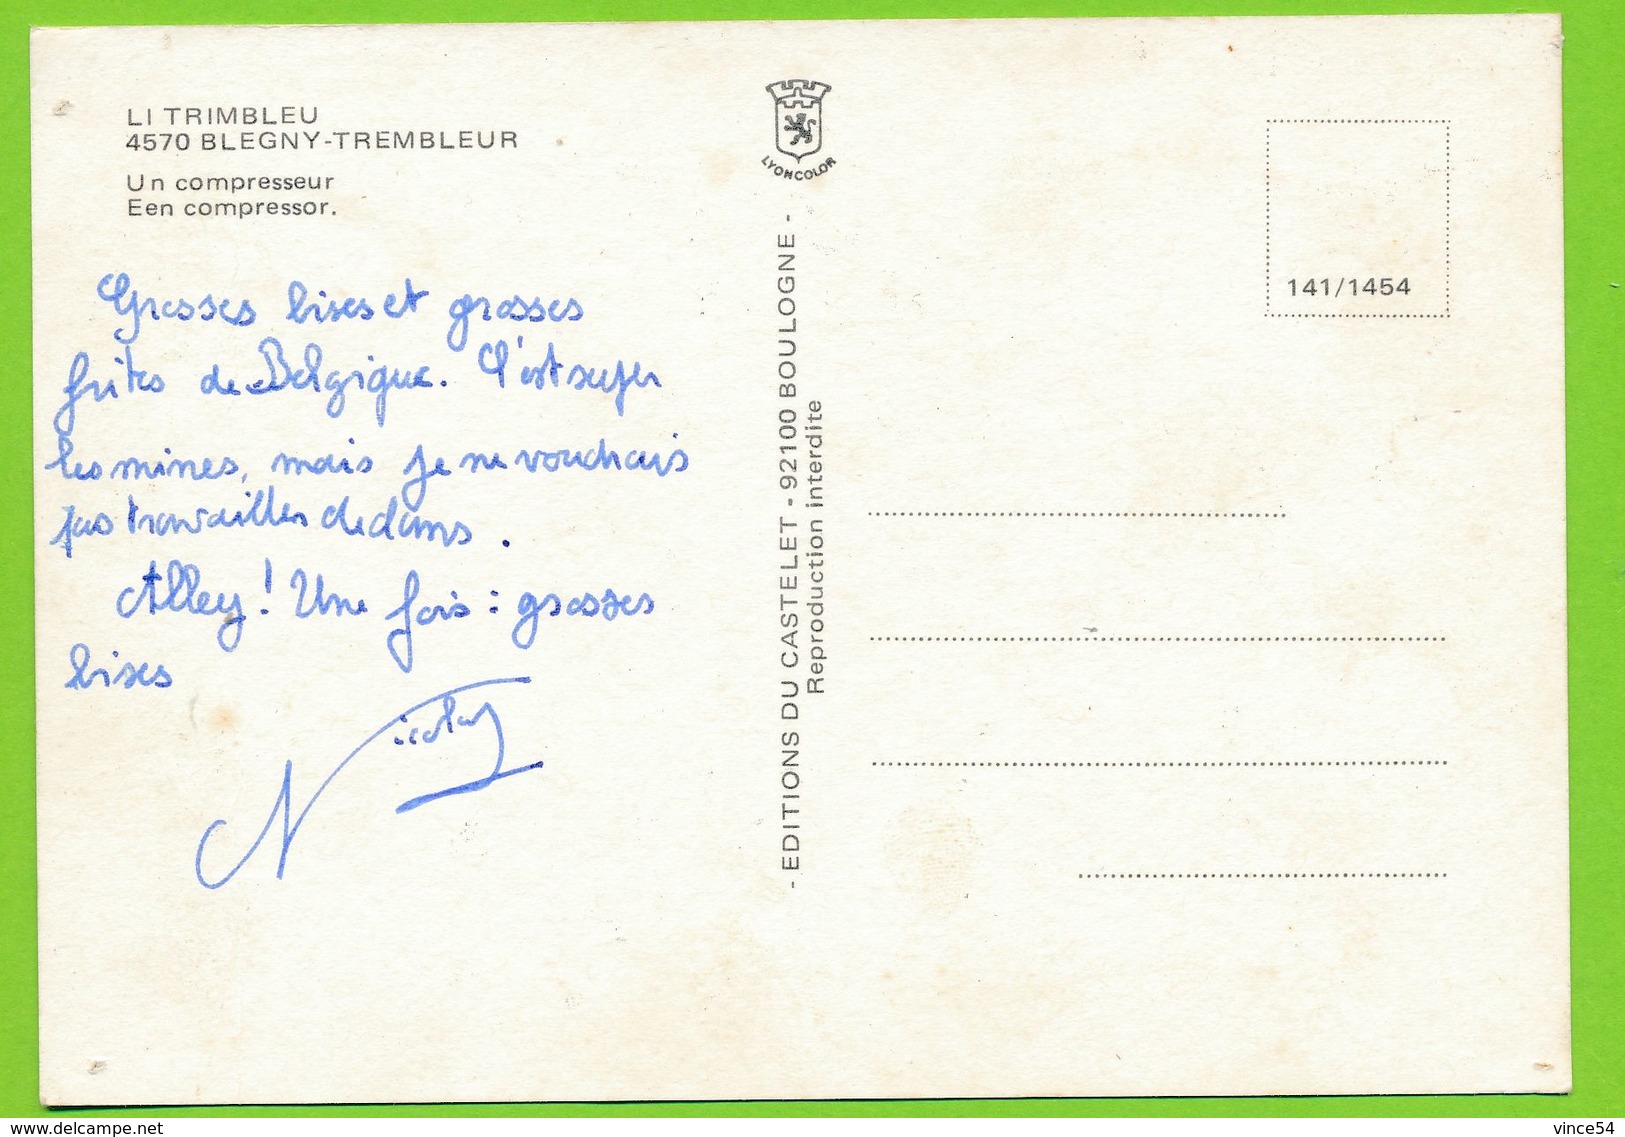 LI TRIMBLEU
4570 BLEGNY-TREMBLEUR
Un compresseur
Een compressor.
Grosses bises et grosses
frites de Belgique. C'est super
les mines, mais je ne voudrais
pas travailler dedans.
Alley! Une fois : grosses
bises
Nicolas
LYONCOLOR
- EDITIONS DU CASTELET - 92100 BOULOGNE -
Reproduction interdite
141/1454
www.delcampe.net
vince54